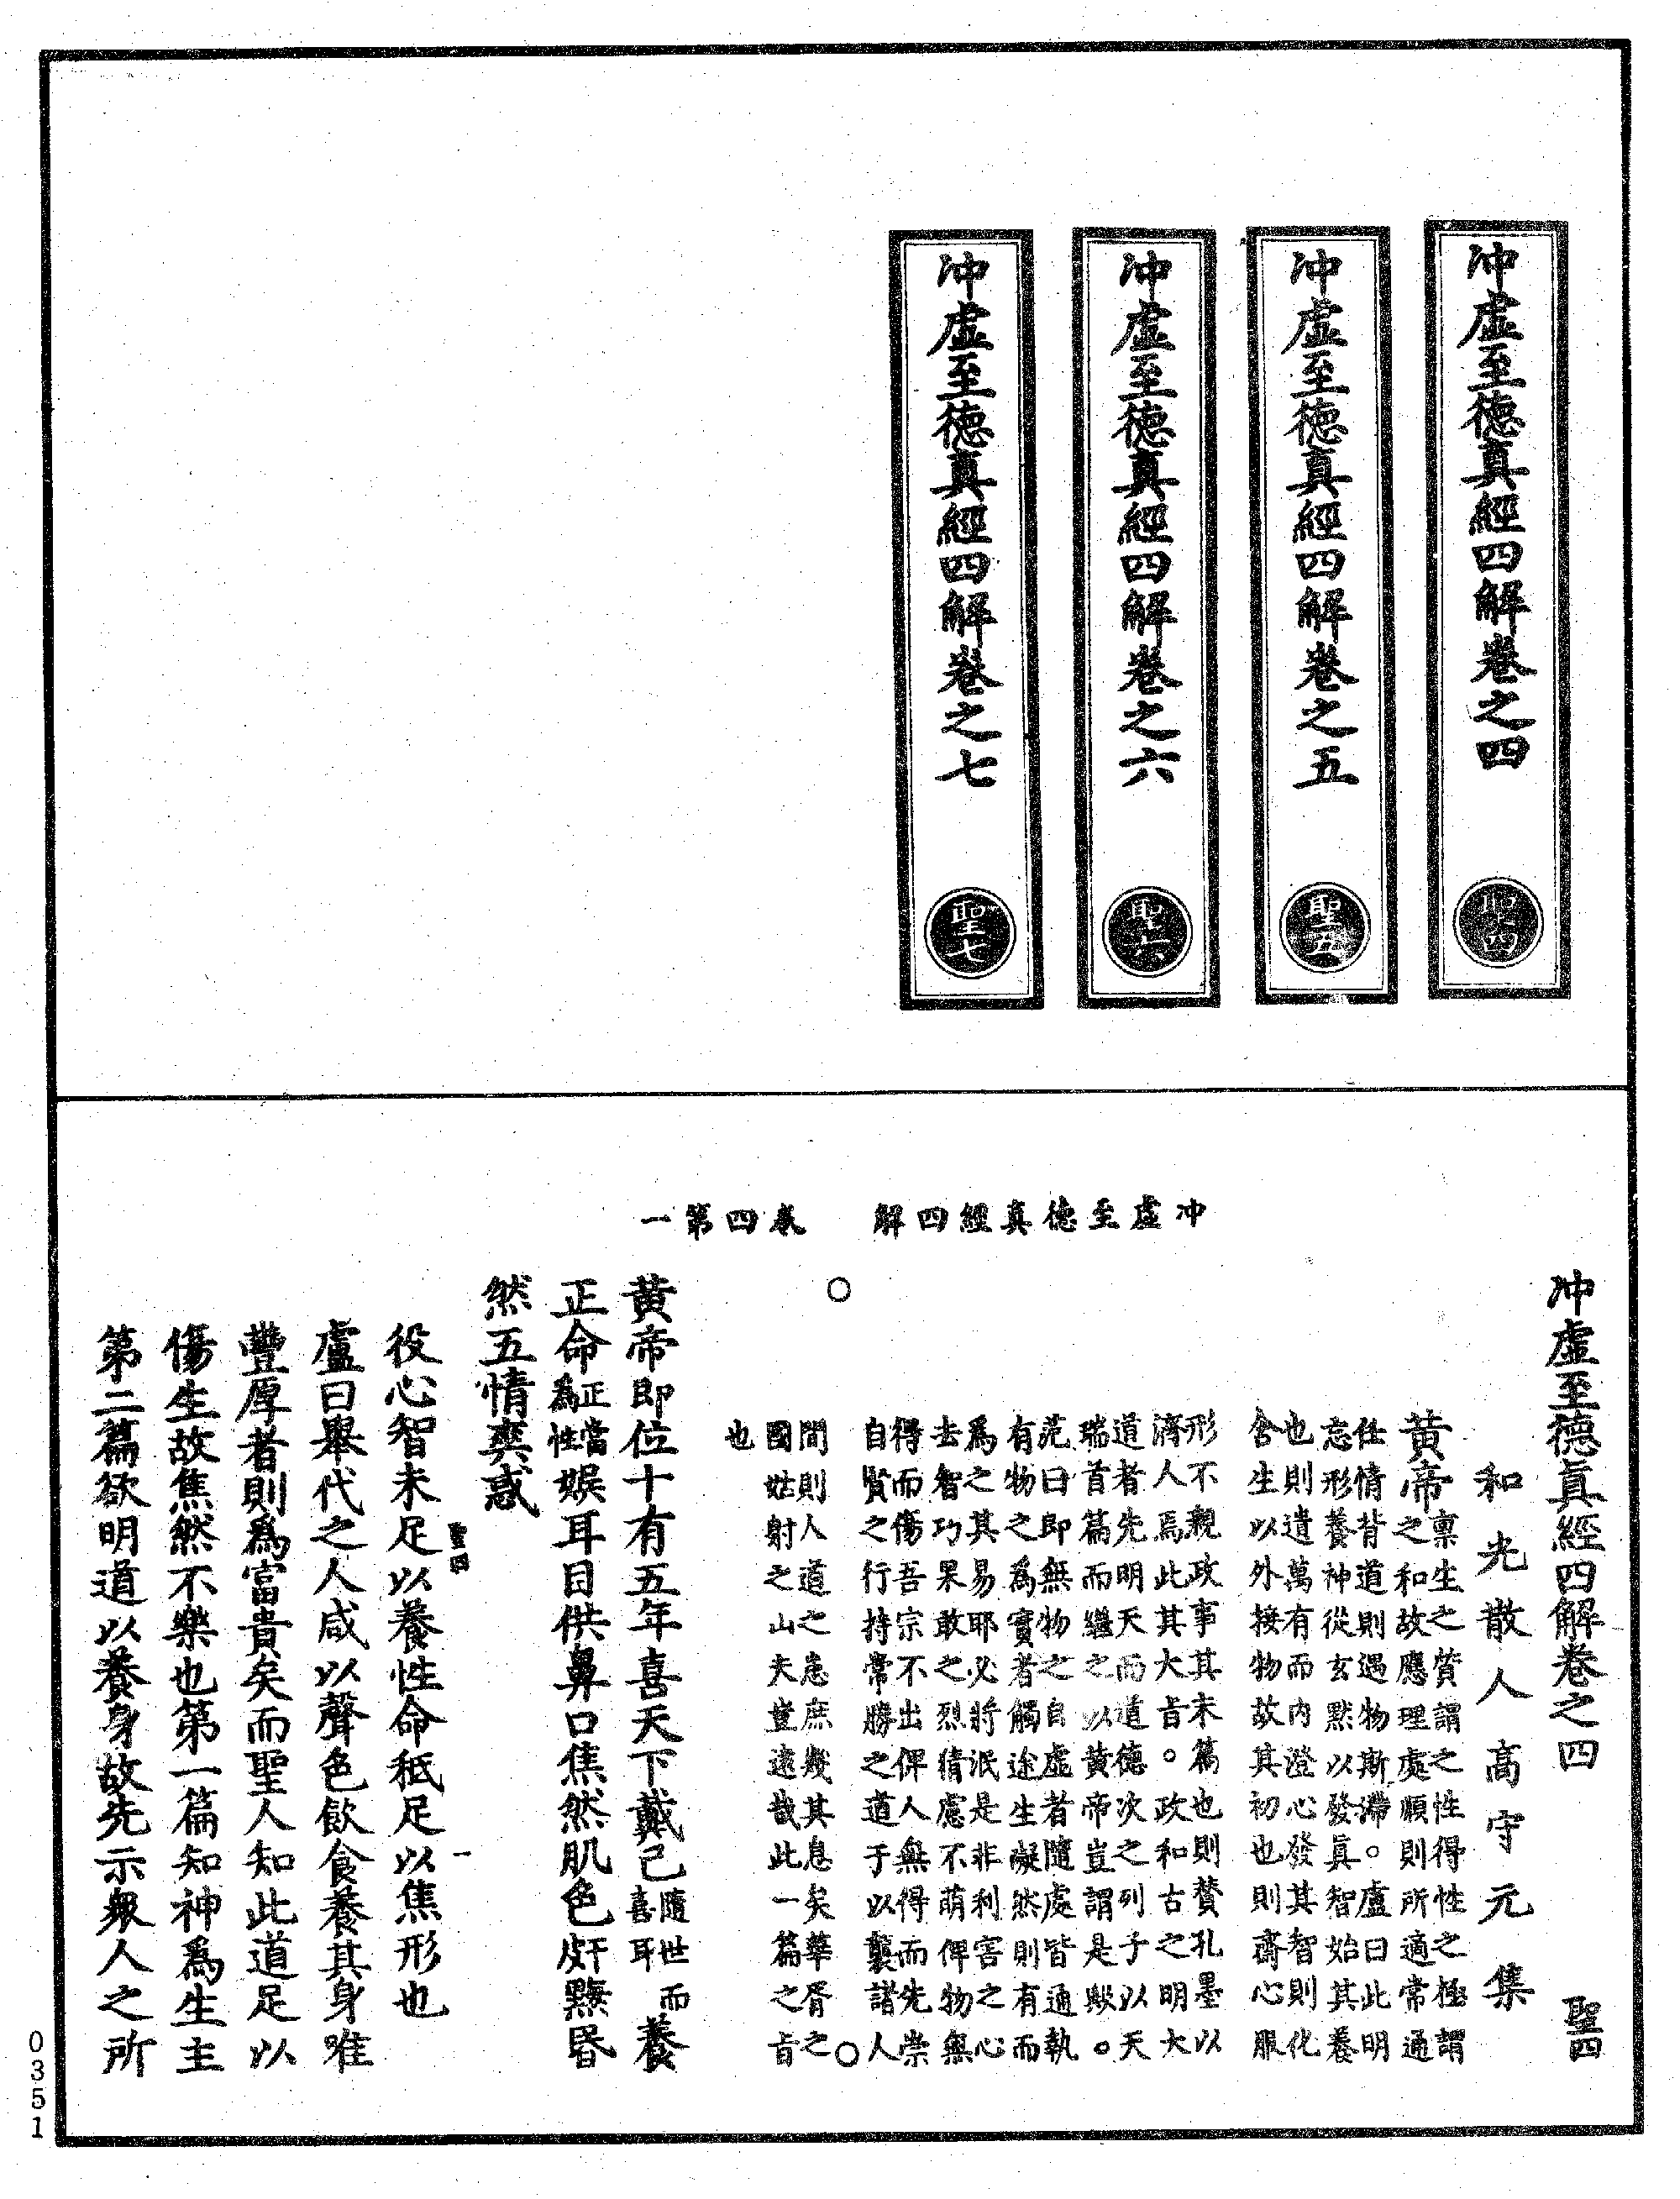 冲虛至德真經四解卷之四 聖四
冲虛至德真經四解卷之五 聖五
冲虛至德真經四解卷之六 聖六
冲虛至德真經四解卷之七 聖七
冲虛至德真經四解　卷四第一
冲虛至德真經四解卷之四 聖四
和光散人高守元集
黃帝稟生之質謂之性得性之極謂
之和故應理處順則所適常通
任情背道則遇物斯滯。盧曰此明
忘形養神從玄默以發真智始其養
也則遺萬有而內澄心發其智則化
含生以外接物故其初也則齋心服
形不親政事其末篇也則贊孔墨以
濟人焉此其大旨。政和古之明大
道者先明天而道德次之列子以天
瑞首篇而繼之以黃帝豈謂是歟。
范曰即無物之自虛者隨處皆通執
有物之爲實者觸途生礙然則有而
爲之其易耶必將泯是非利害之心
去智巧果敢之烈猜慮不萌俾物無
得而傷吾宗不出俾人無得而先崇
自賢之行持常勝之道于以襲諸人
間則人道之患庶幾其息矣華胥之
國姑射之山夫豈遠哉此一篇之旨
也
○ ○
黃帝即位十有五年喜天下戴己隨世而喜耳養
正命正當爲性娛耳目供鼻口焦然肌色皯黣昏
然五情爽惑
聖四 一
役心智未足以養性命秖足以焦形也
盧曰舉代之人咸以聲色飲食養其身唯
豐厚者則爲富貴矣而聖人知此道足以
傷生故焦然不樂也第一篇知神爲生主
第二篇欲明道以養身故先示衆人之所
0351